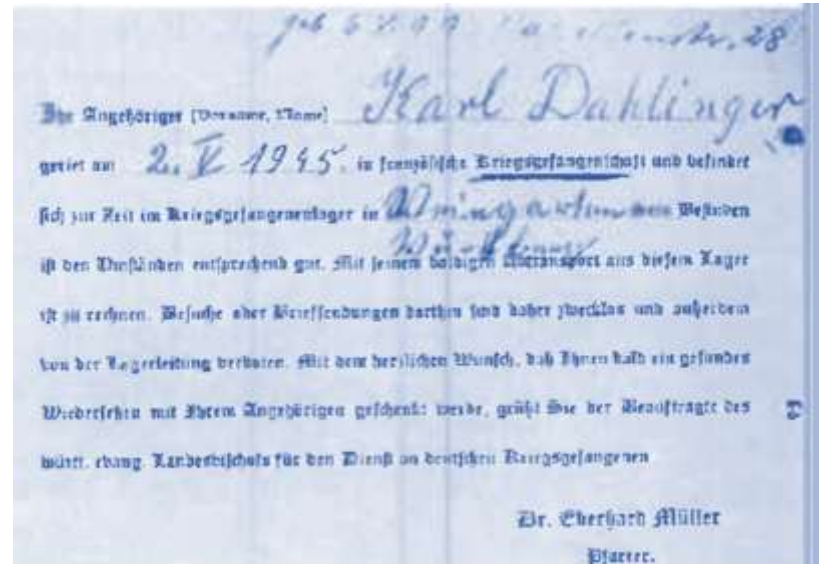 geb 5 ... str. 28
Ihr Angehöriger [Vorname, Name] Karl Dahlinger
geriet am 2. V 1945. in französische Kriegsgefangenschaft und befindet
sich zur Zeit im Kriegsgefangenenlager in Weingarten Befinden
Württbg
ist den Umständen entsprechend gut. Mit seinem baldigen Abtransport aus diesem Lager
ist zu rechnen. Besuche oder Briefsendungen dorthin sind daher zwecklos und außerdem
von der Lagerleitung verboten. Mit dem herzlichen Wunsch, daß Ihnen bald ein gesundes
Wiedersehen mit Ihrem Angehörigen geschenkt werde, grüßt Sie der Beauftragte des
württ. evang. Landesbischofs für den Dienst an deutschen Kriegsgefangenen
Dr. Eberhard Müller
Pfarrer.